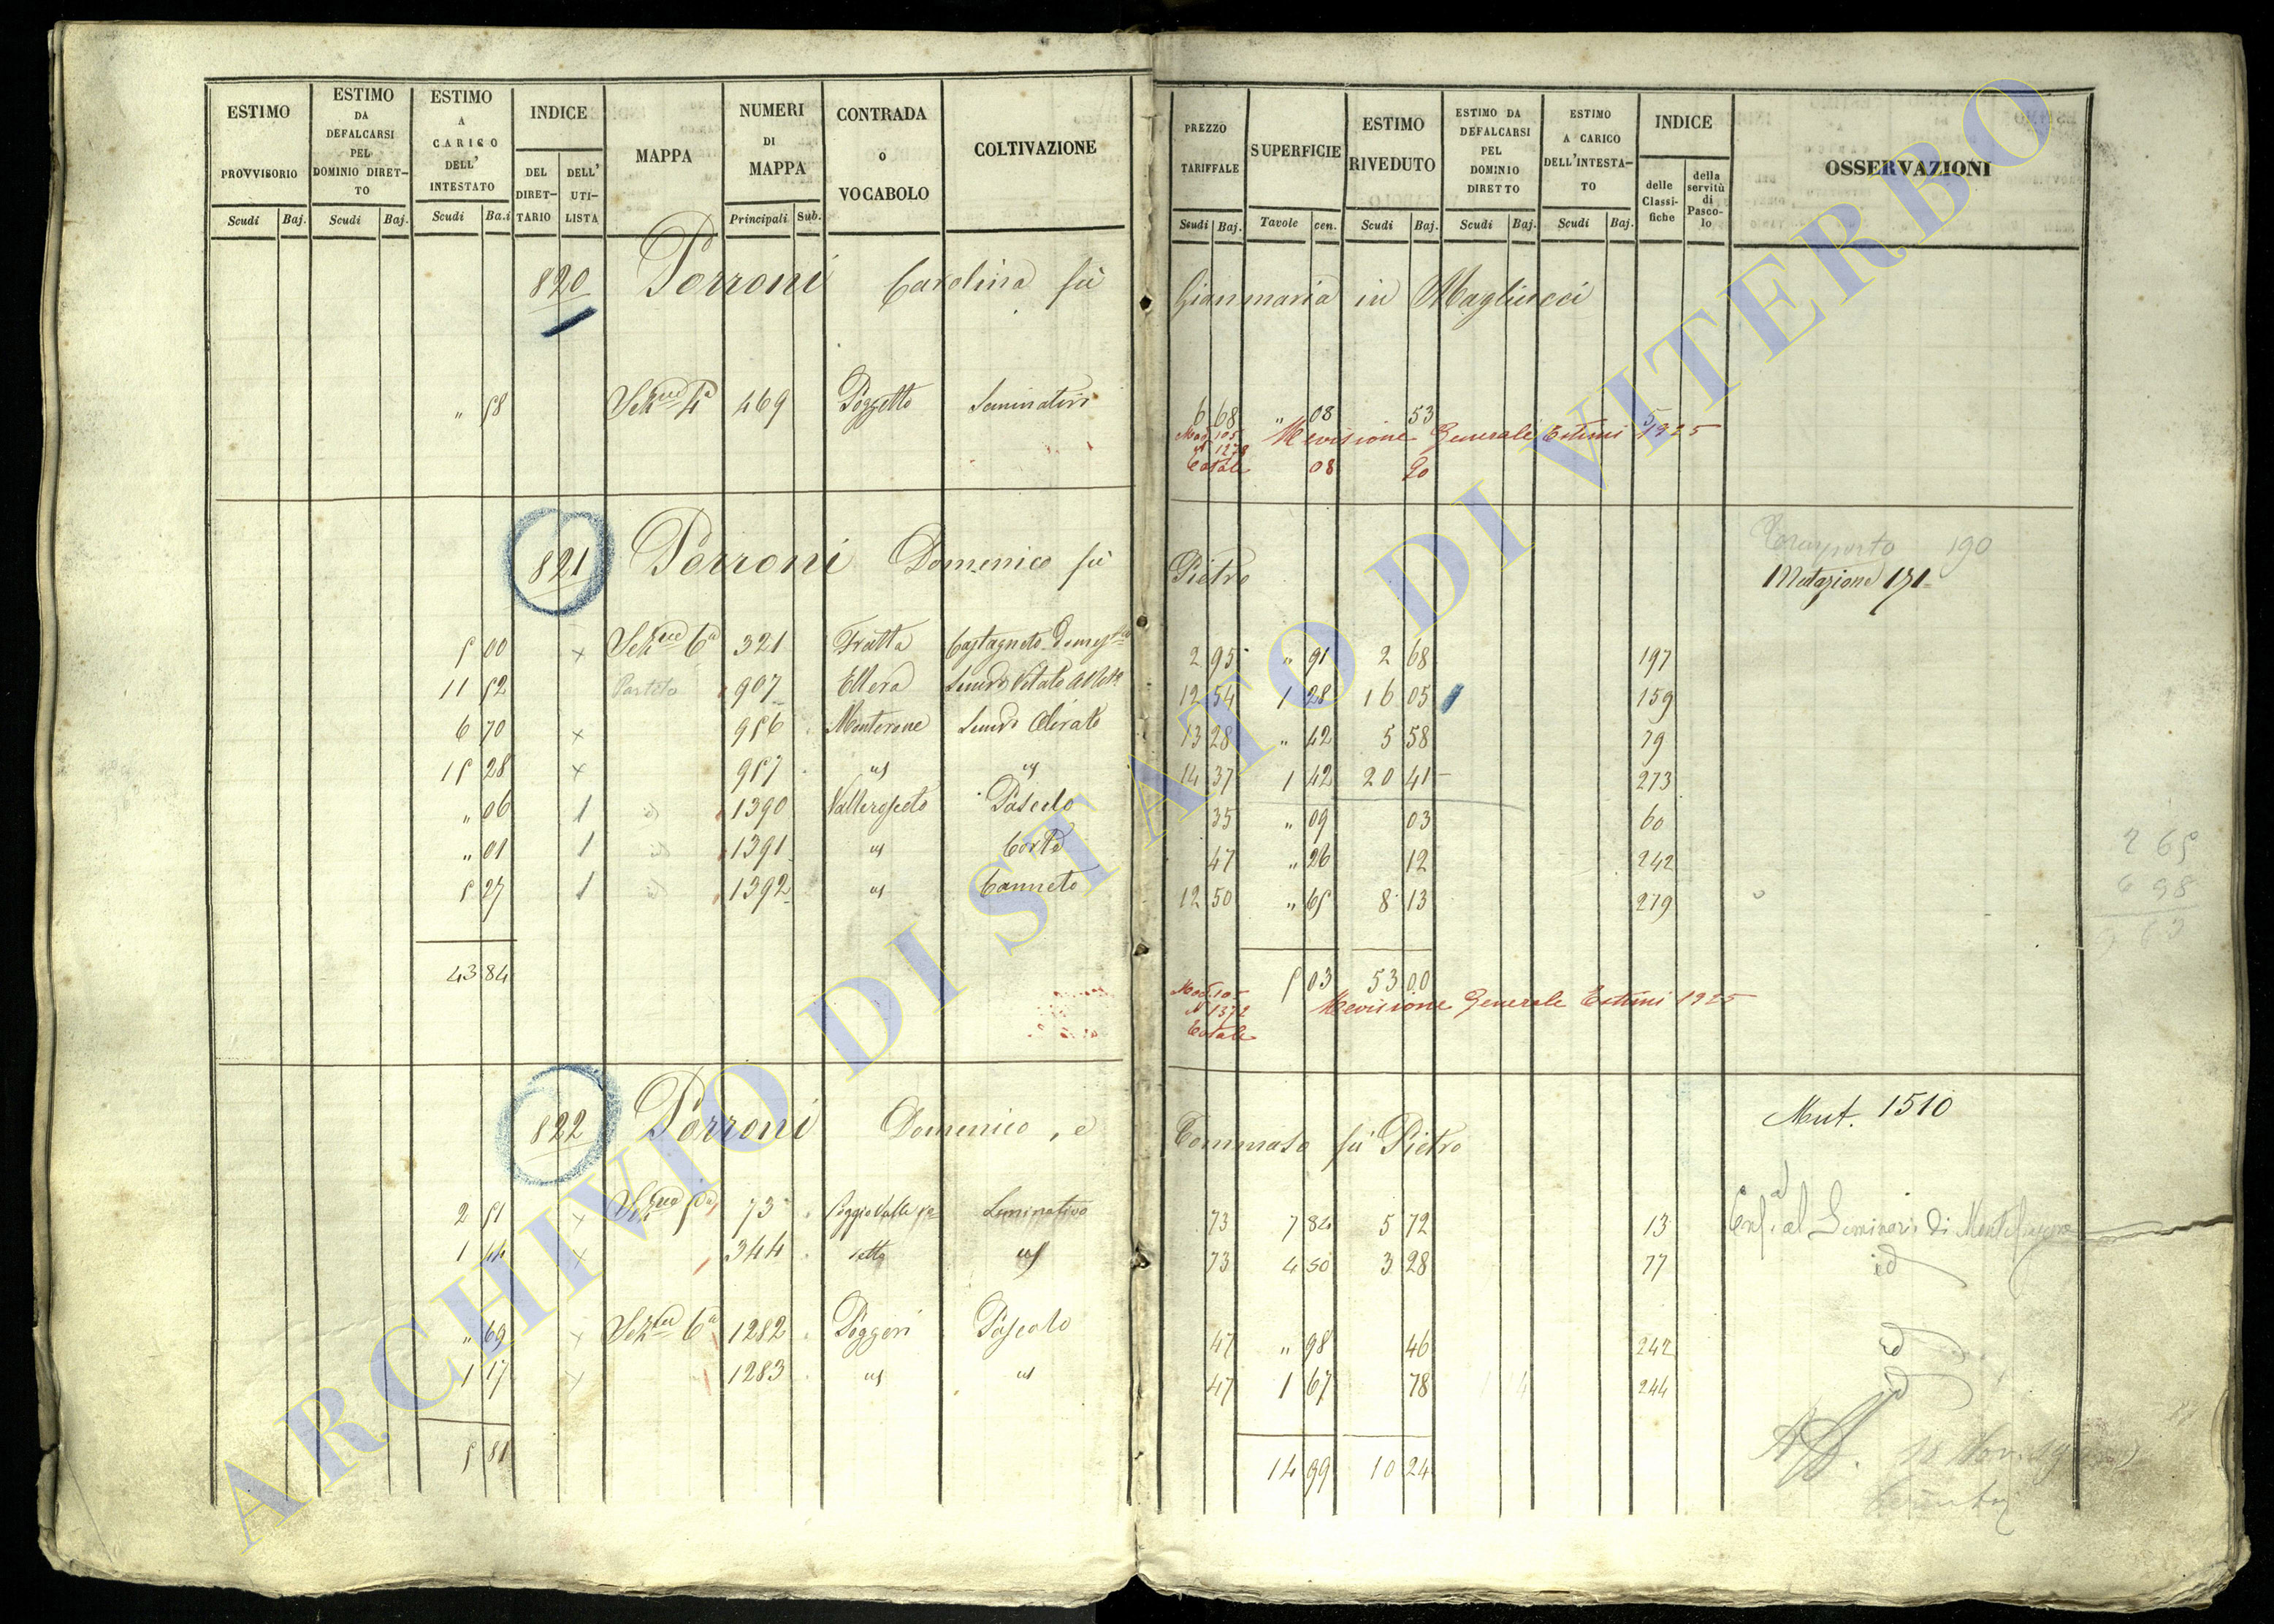 ESTIMO PROVVISORIO Scudi Baj.
ESTIMO DA DEFALCARSI PEL DOMINIO DIRETTO Scudi Baj.
ESTIMO A CARICO DELL' INTESTATO Scudi Ba.i
INDICE DEL DIRETTARIO DELL' UTILISTA
MAPPA
NUMERI DI MAPPA Principali Sub.
CONTRADA O VOCABOLO
COLTIVAZIONE
PREZZO TARIFFALE Scudi Baj.
SUPERFICIE Tavole cen.
ESTIMO RIVEDUTO Scudi Baj.
ESTIMO DA DEFALCARSI PEL DOMINIO DIRETTO Scudi Baj.
ESTIMO A CARICO DELL'INTESTATO Scudi Baj.
INDICE delle Classifiche della servitù di Pascolo
OSSERVAZIONI
820 Porroni Carolina fù Gianmaria in Magliucci
" 58 469 Poggetto 6 68 " 08 53 5
Mod. 105 Revisione Generale Estimi 1925
N 1278
Totale 08 20
821 Porroni Domenico fù Pietro
190
Mutazione 171
5 00 x 6a 321 Fratta 2 95 " 91 2 68 197
11 52 907 Ellera 12 54 1 28 16 05 159
6 70 x 956 Monterone Semvo Olivato 13 28 " 42 5 58 79
15 28 x 957 us us 14 37 1 42 20 41 273
" 06 1 id 1390 Pascolo 35 " 09 03 60
" 01 1 id 1391 us 47 " 26 12 242
5 27 1 id 1392 us Canneto 12 50 " 65 8 13 279
43 84 5 03 53 00
Mod. 105 Revisione Generale Estimi 1925
N 1372
Totale
2 65
6 98
822 Porroni Domenico, e Tommaso fù Pietro
Mut. 1510
2 51 x 5a 73 Seminativo 73 7 84 5 72 13 al Seminario di Montefiascone
1 44 x 344 us 73 4 50 3 28 77 id
" 69 x 6a 1282 Poggeri Pascolo 47 " 98 46 242 id
1 17 x 1283 us us 47 1 67 78 244 id
5 81 14 99 10 24
18 Nov.
ARCHIVIO DI STATO DI VITERBO